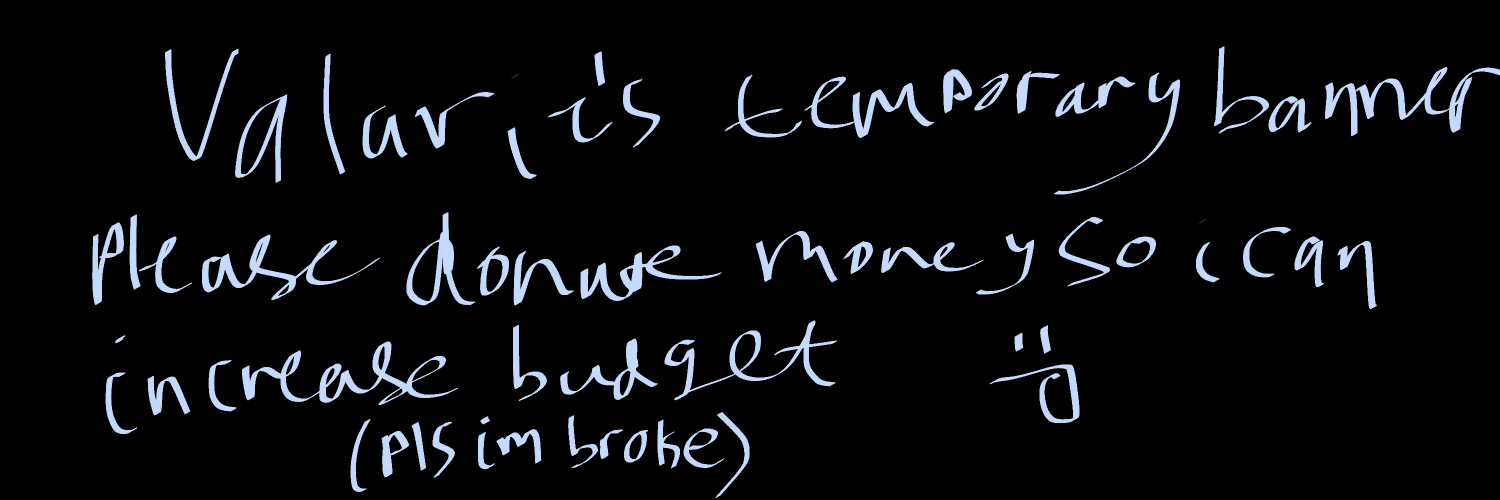 Valari's temporary banner
Please donate money so i can
increase budget
(pls im broke)